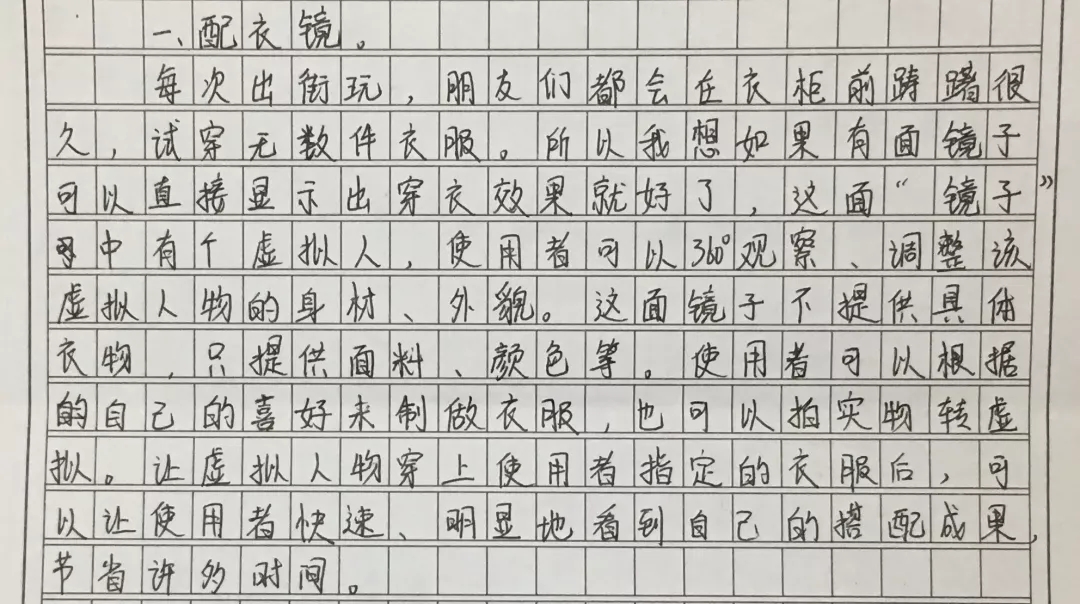 一、配衣镜。
每次出街玩，朋友们都会在衣柜前踌躇很
久，试穿无数件衣服。所以我想如果有面镜子
可以直接显示出穿衣效果就好了，这面“镜子”
中有个虚拟人，使用者可以360°观察、调整该
虚拟人物的身材、外貌。这面镜子不提供具体
衣物，只提供面料、颜色等。使用者可以根据
的自己的喜好来制做衣服，也可以拍实物转虚
拟。让虚拟人物穿上使用者指定的衣服后，可
以让使用者快速、明显地看到自己的搭配成果，
节省许多时间。